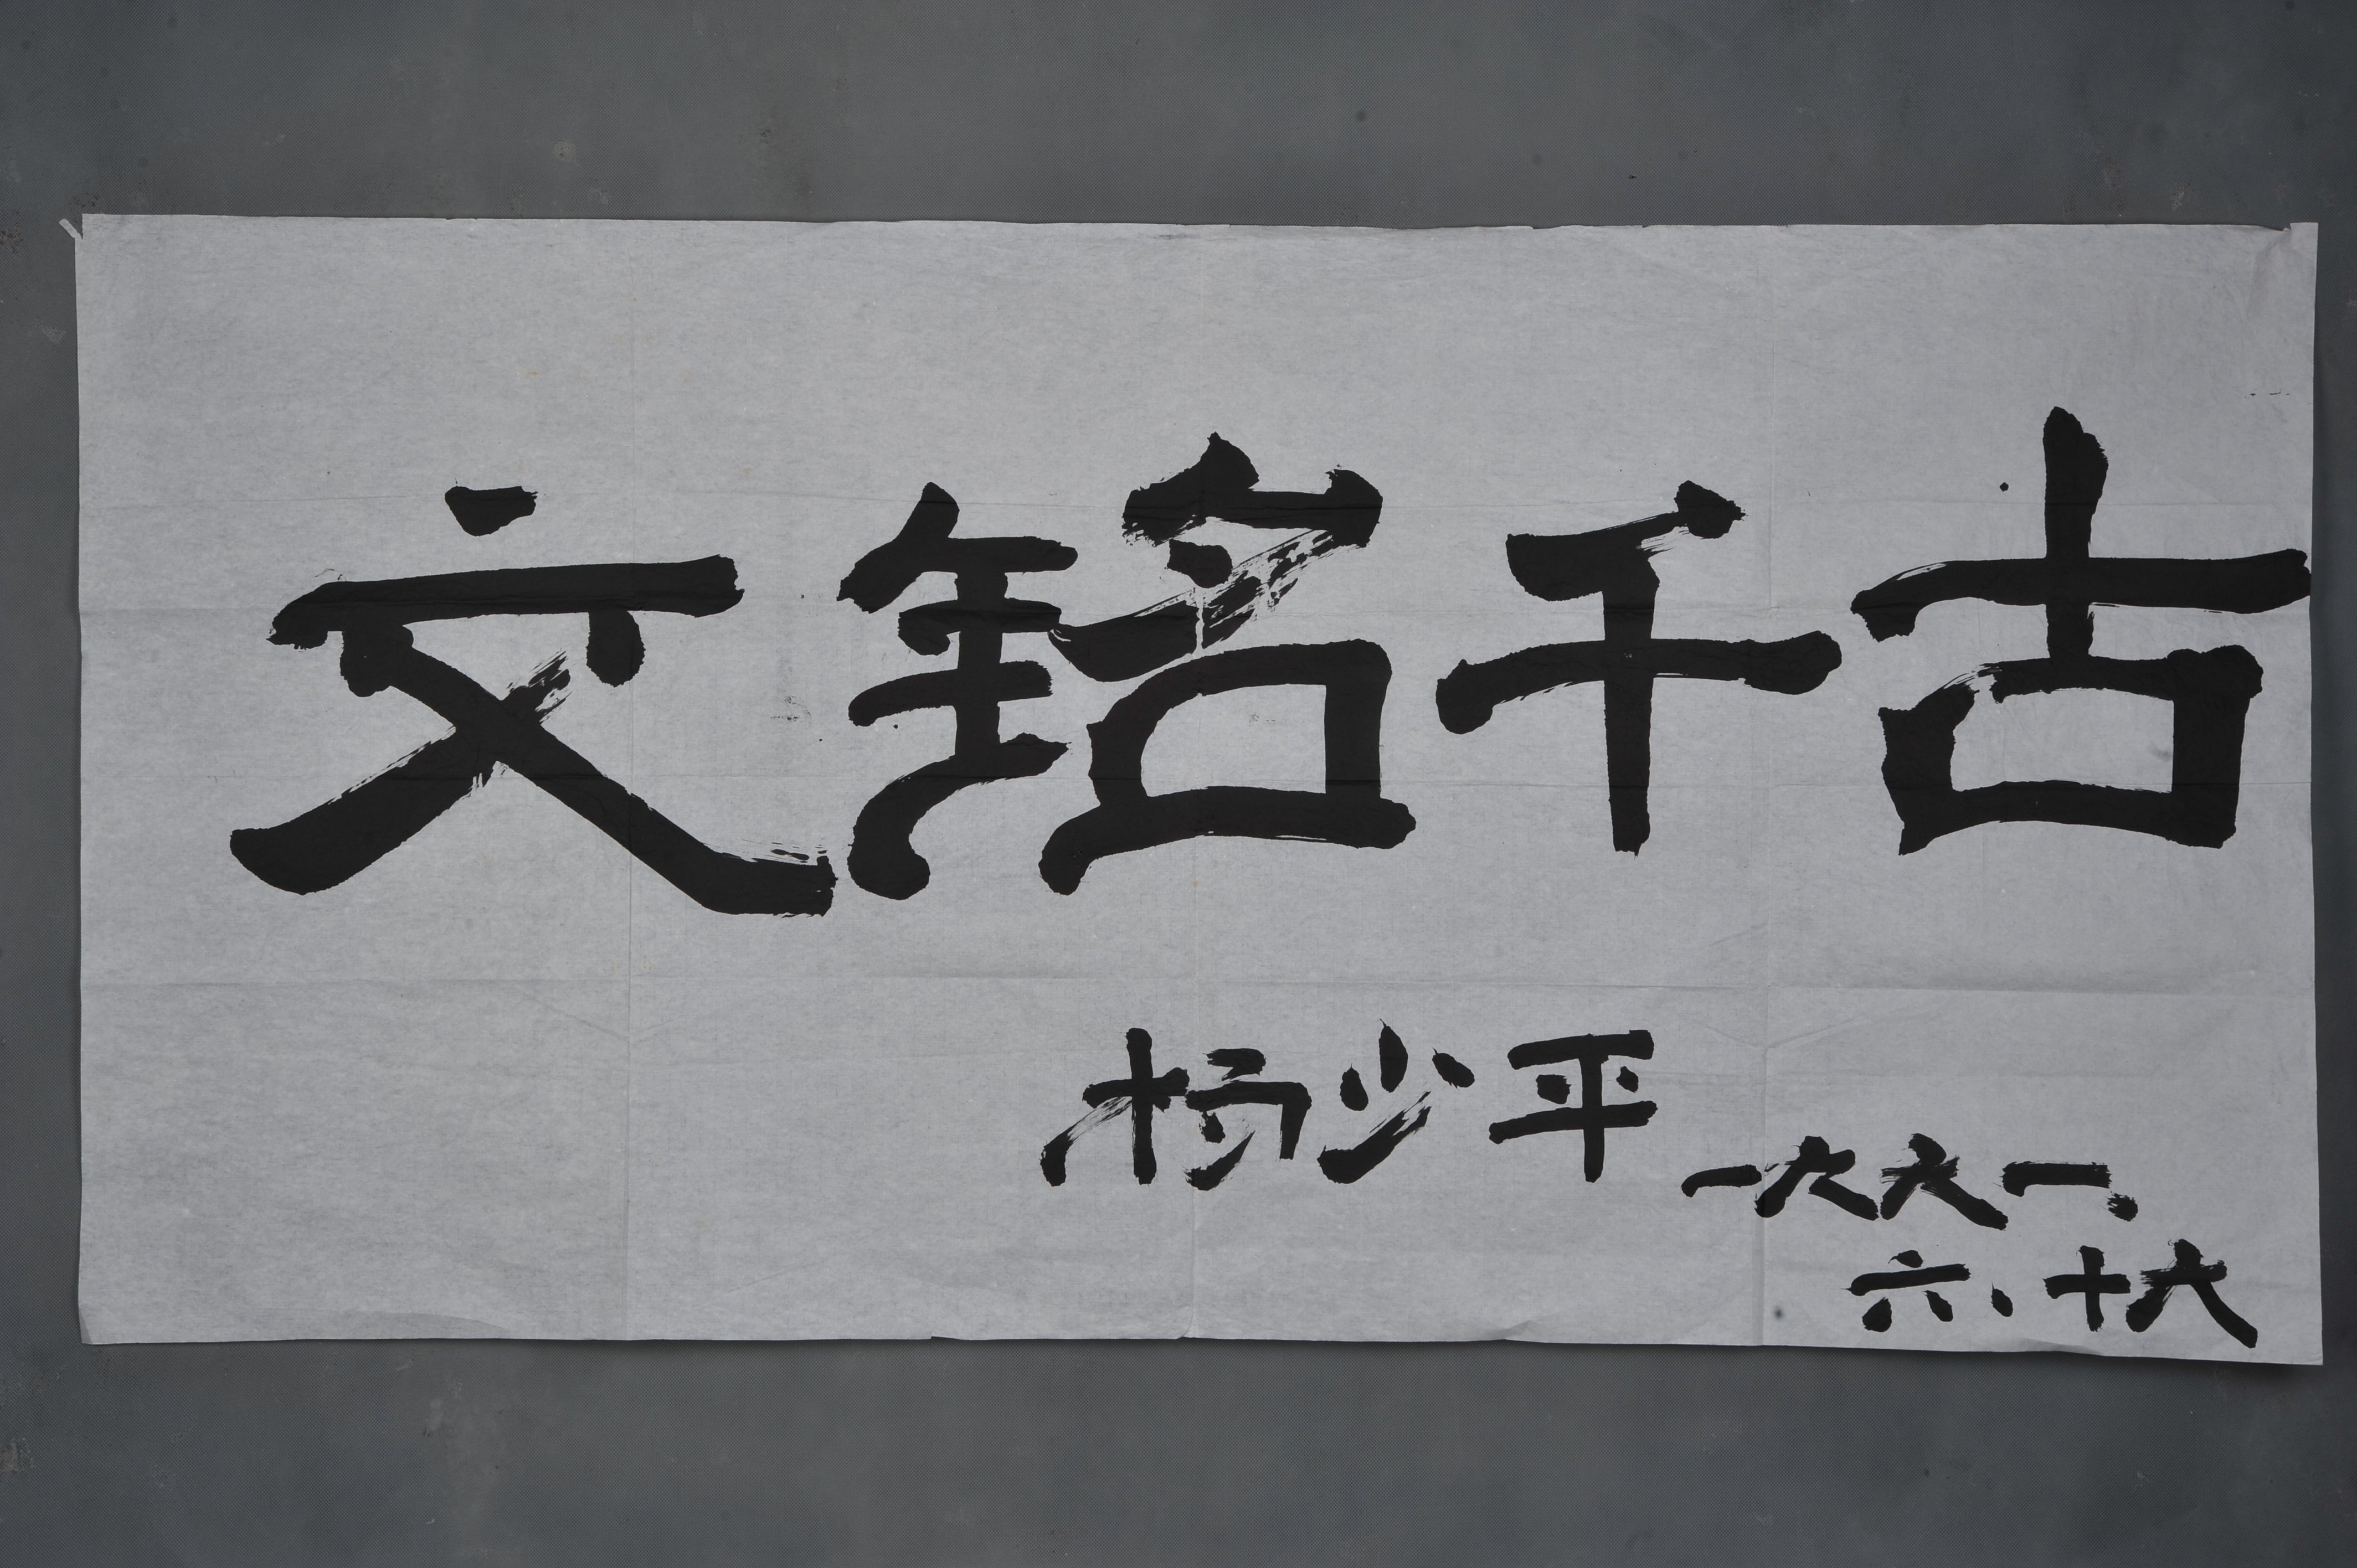 文铭千古
杨少平
一九九一、
六、十九